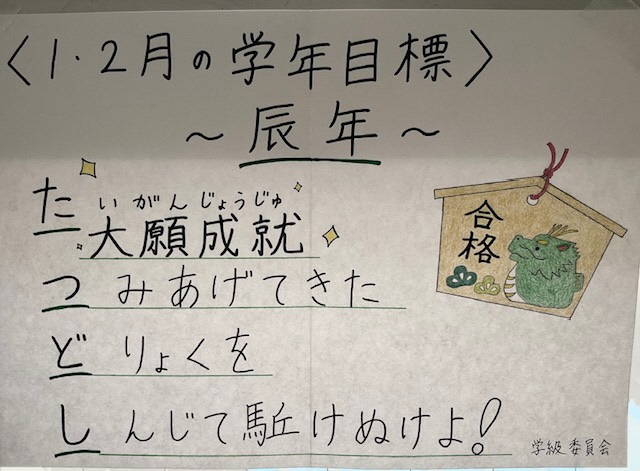 〈1・2月の学年目標〉
～辰年～
たいがんじょうじゅ
大願成就
つみあげてきた
どりょくを
しんじて駈けぬけよ!
合格
学級委員会